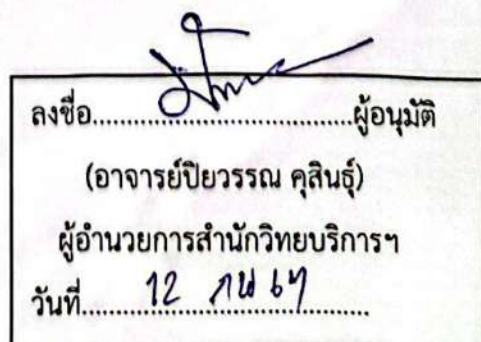 ลงชื่อ..................................ผู้อนุมัติ
(อาจารย์ปิยวรรณ คุสินธุ์)
ผู้อำนวยการสำนักวิทยบริการฯ
วันที่.....12 กย 67.....